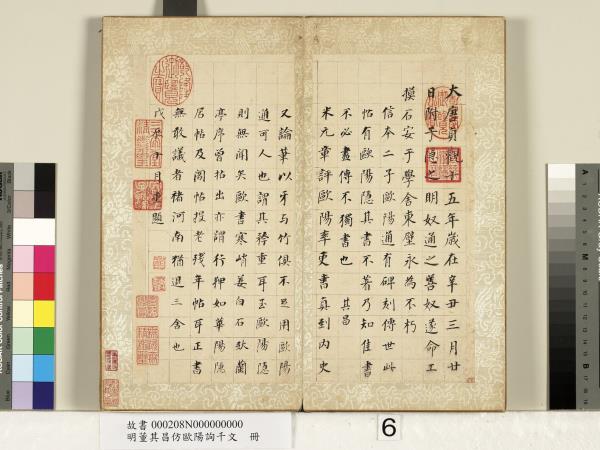 大唐貞觀十五年歲在辛丑三月廿
日附子隱之明奴通之善奴遂命工
模石安于學舍東壁永為不朽
信本二子歐陽通有碑刻傳世此
帖有歐陽隱其書不著乃知佳書
不必盡傳不獨書也　其昌
米元章評歐陽率更書真到內史
又論筆以牙与竹俱不足用歐陽
通可人也謂其得重耳至歐陽隱
則無聞矣歐書寒峭姜白石欤蘭
亭序曾拈出亦謂行押如華陽隱
居帖及閣帖投老殘年帖耳正書
無敢議者褚河南猶退三舍也
十月重題
故書 000208N000000000
明董其昌仿歐陽詢千文　冊
6